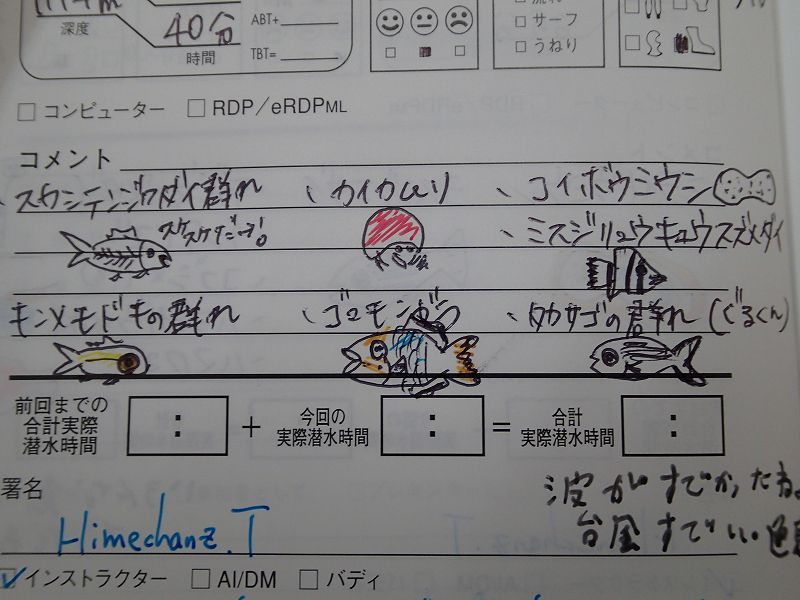 深度
40分
時間
ABT+
TBT=
サーフ
うねり
コンピューター RDP/eRDPML
コメント
スカシテンジクダイ群れ 、カイカムリ 、コイボウミウシ
スケスケだっ!。
、ミスジリュウキュウスズメダイ
キンメモドキの群れ 、ゴマモンガラ 、タカサゴの群れ(ぐるくん)
前回までの合計実際潜水時間 : + 今回の実際潜水時間 : = 合計実際潜水時間 :
署名
波がすごかったね。
Himechanz.T
インストラクター AI/DM バディ